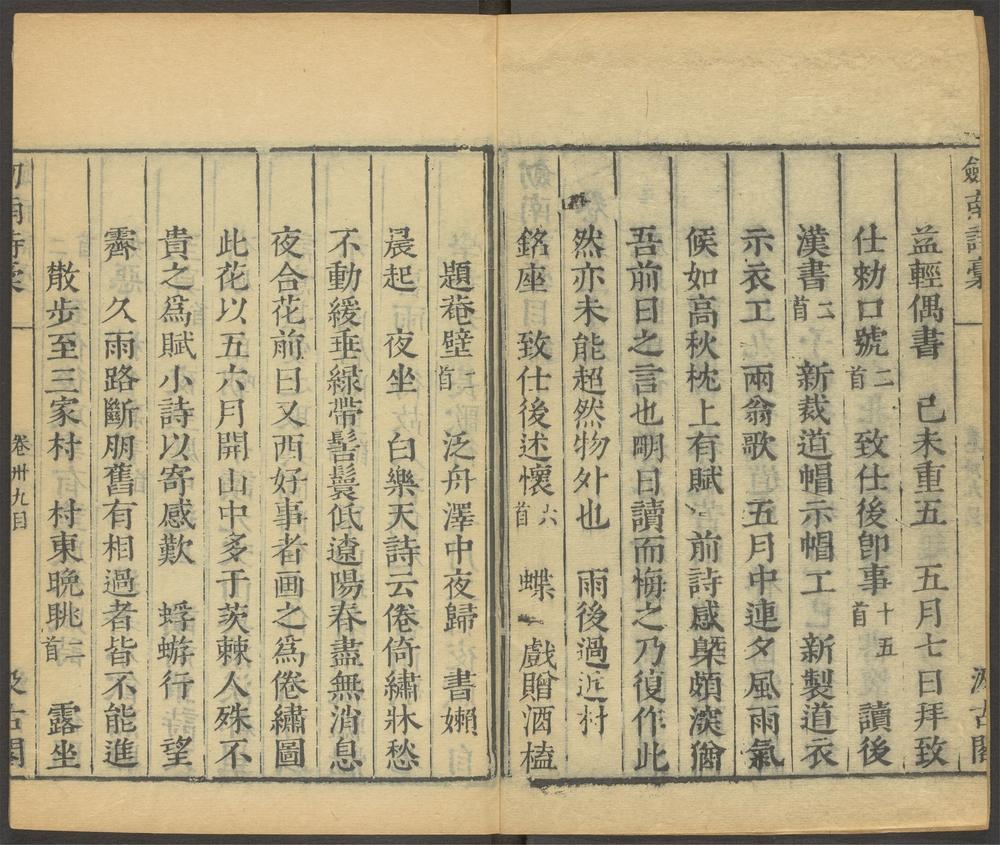 劔南詩稾
汲古閣
益輕偶書　己未重五　五月七日拜致
仕勑口號二首　致仕後卽事十五首　讀後
漢書二首　新裁道帽示帽工　新製道衣
示衣工　兩翁歌　五月中連夕風雨氣
候如高秋枕上有賦　前詩感槩頗深猶
吾前日之言也明日讀而悔之乃復作此
然亦未能超然物外也　雨後過近村
銘座　致仕後述懷六首　蝶　戲贈酒榼
題菴壁二首　泛舟澤中夜歸　書嬾
晨起　夜坐　白樂天詩云倦倚繡牀愁
不動緩垂綠帶髻鬟低遼陽春盡無消息
夜合花前日又西好事者画之爲倦繡圖
此花以五六月開山中多于茨棘人殊不
貴之爲賦小詩以寄感歎　蜉蝣行　望
霽　久雨路斷朋舊有相過者皆不能進
散步至三家村　村東晚眺二首　露坐
劔南詩稾
卷卅九目
汲古閣